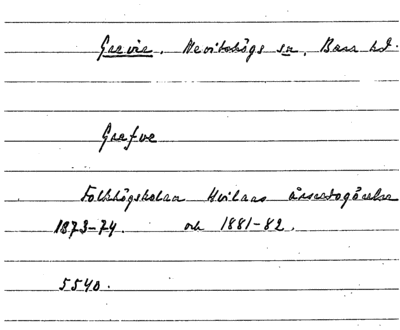 Grevie. Nevitshögs sn, Bara hd.
Grefve
Folkhögskolan Hvilans årsredogörelse
1873-74. och 1881-82.
5540.